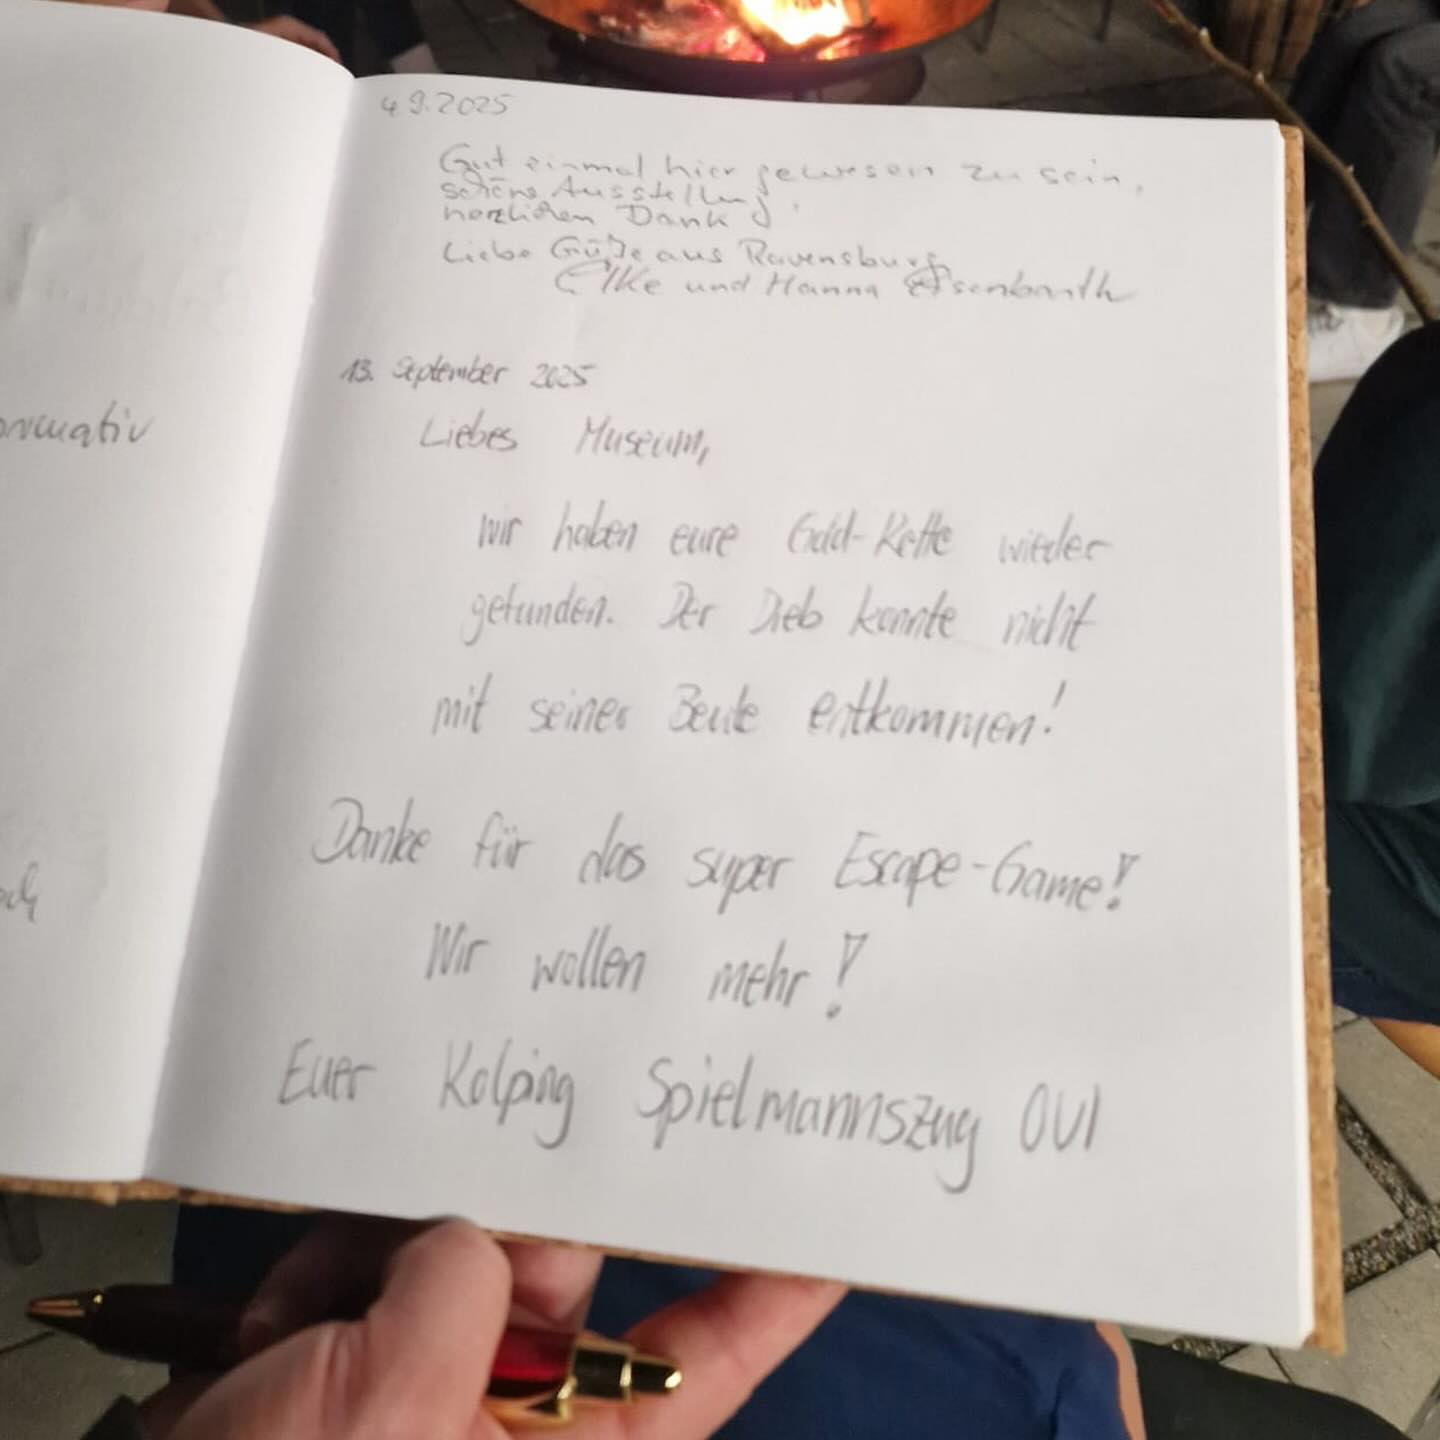 4.9.2025
Gut einmal hier gewesen zu sein,
schöne Ausstellung,
herzlichen Dank
Liebe Grüße aus Ravensburg
Elke und Hanna
13. September 2025
Liebes Museum,
wir haben eure Gold-Kette wieder
gefunden. Der Dieb konnte nicht
mit seiner Beute entkommen!
Danke für das super Escape-Game!
Wir wollen mehr!
Euer Kolping Spielmannszug OUI